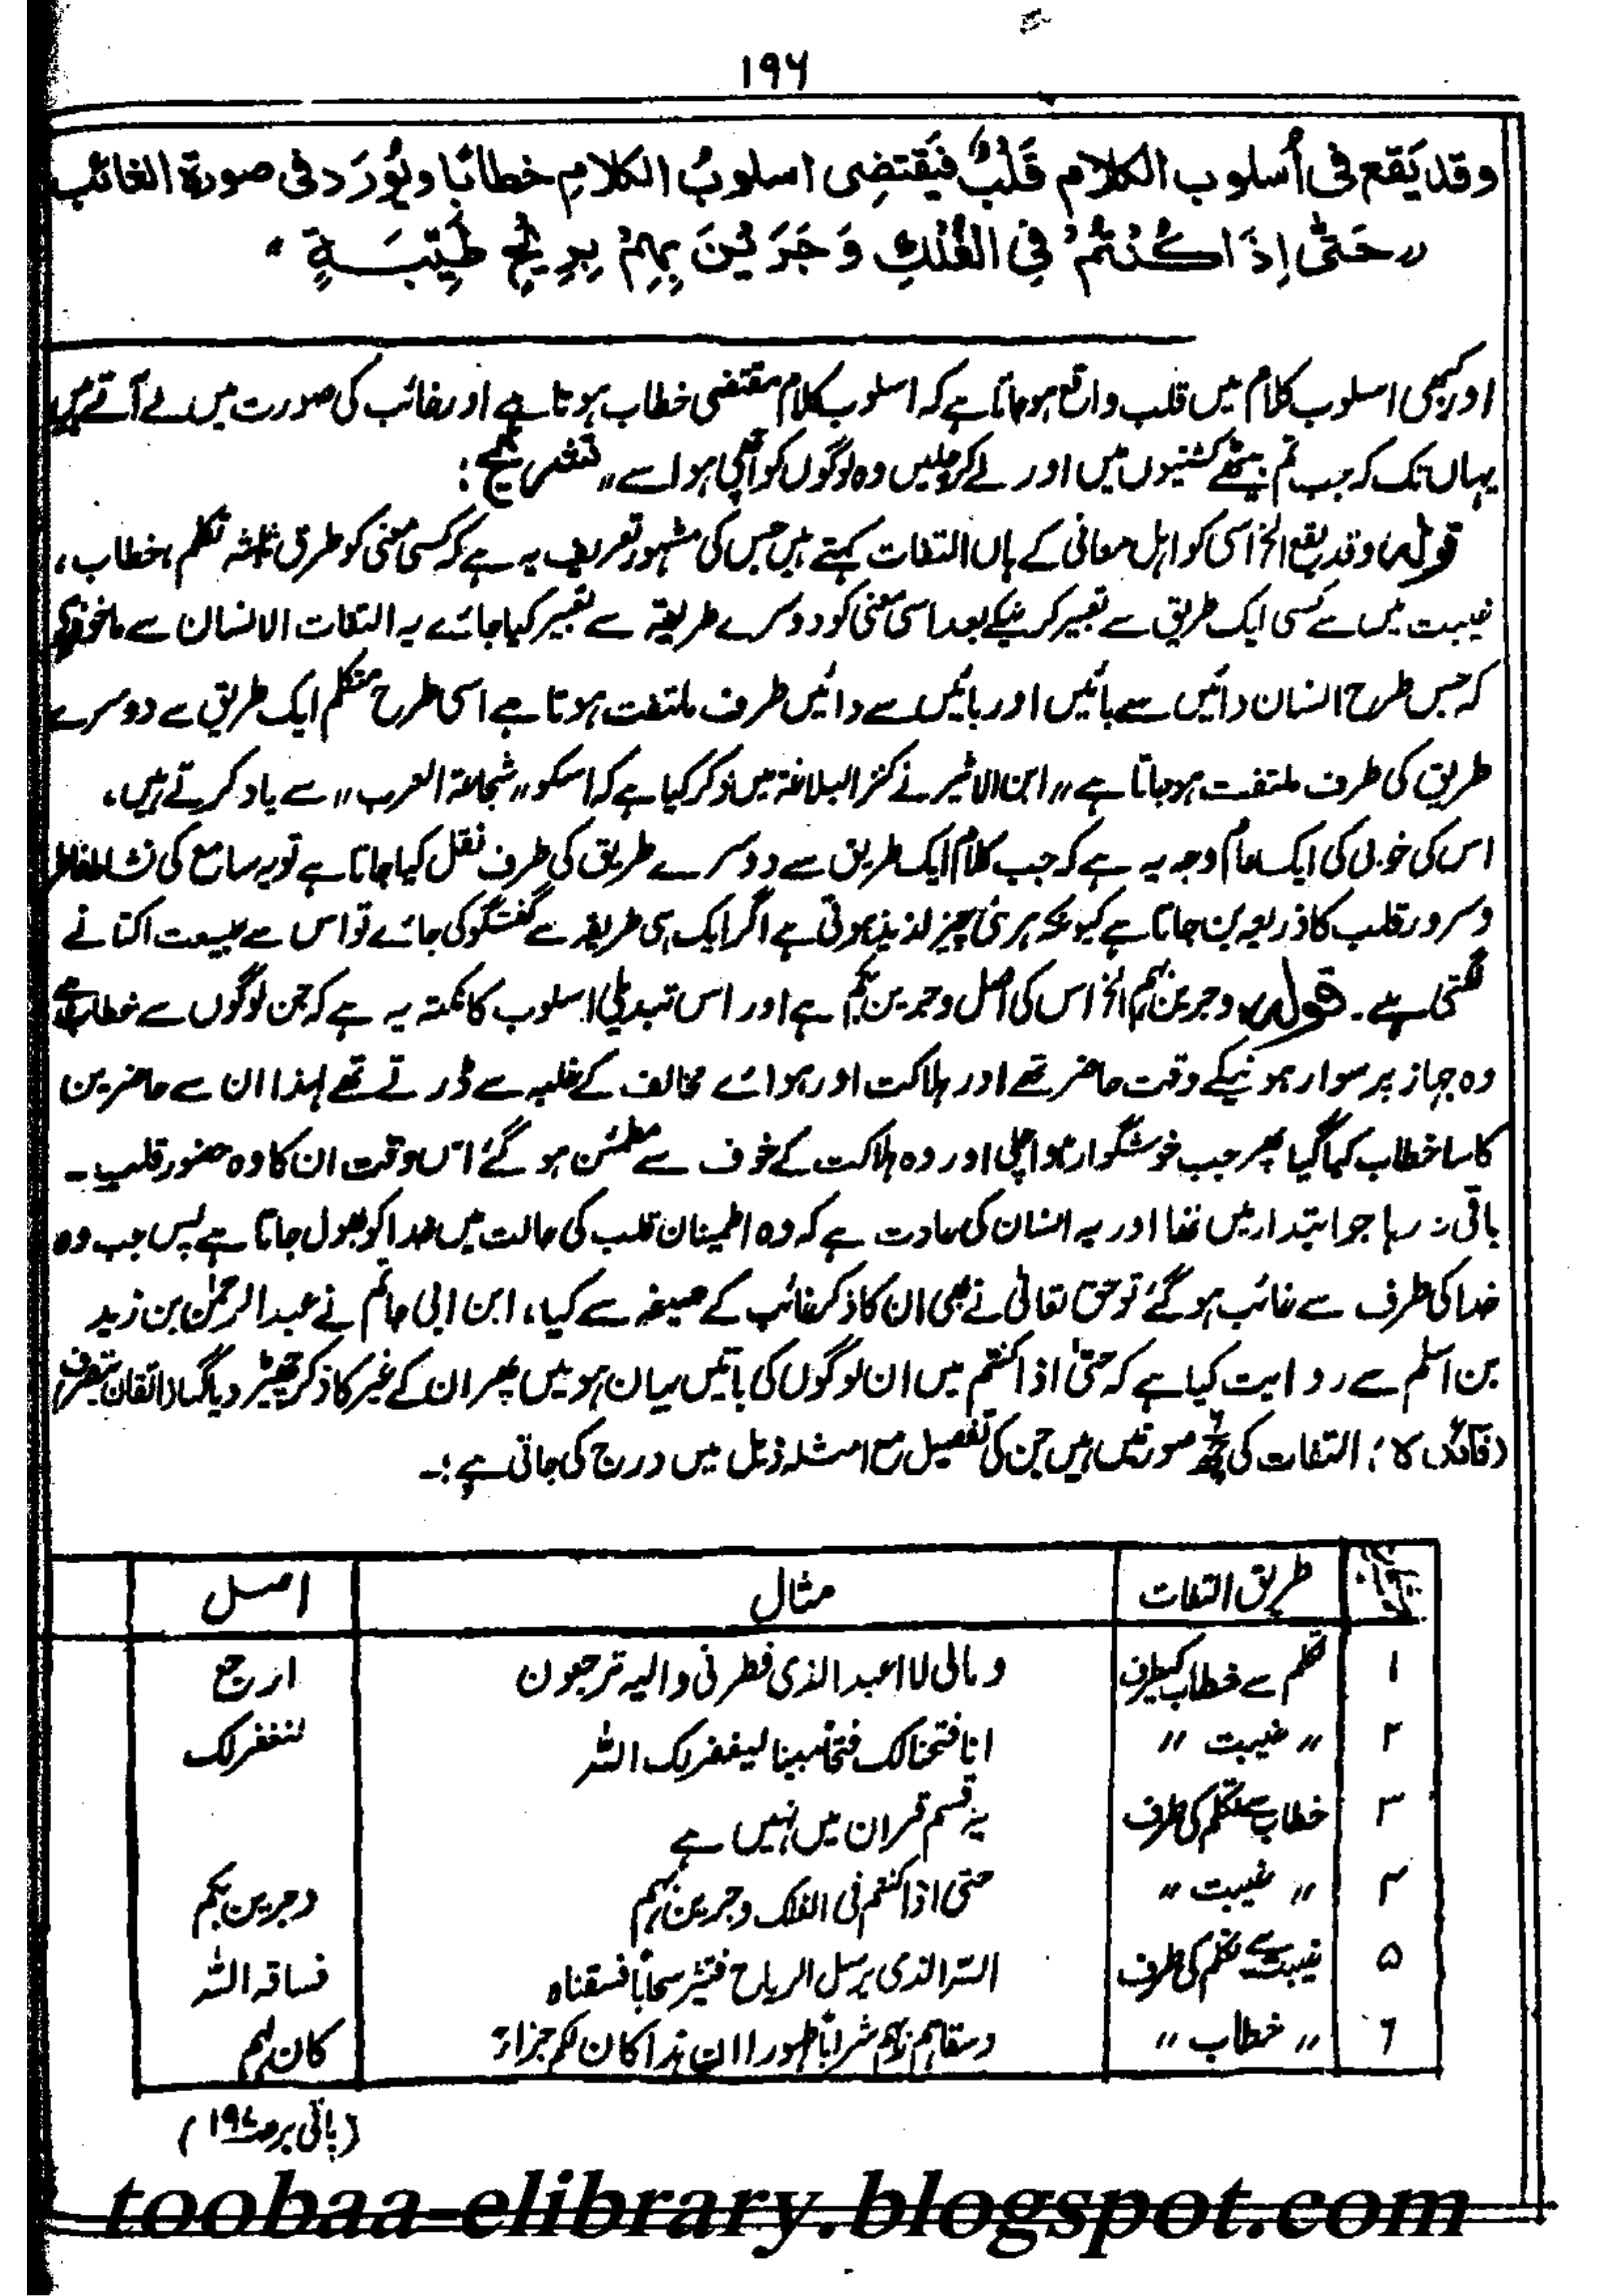 ۱۹۶
وقد يَقع فى أسلوب الكلام قَلْبٌ فيَقتضِى اسلوبُ الكلامِ خطابًا ويُورَد فى صورة الغائب
〃حَتّٰى اِذَا كُنْتُمْ فِى الْفُلْكِ وَ جَرَيْنَ بِهِمْ بِرِيْحٍ طَيِّبَةٍ 〃
اور کبھی اسلوب کلام میں قلب واقع ہوجاتا ہے کہ اسلوب کلام مقتضی خطاب ہوتا ہے اور غائب کی صورت میں لے آتے ہیں
یہاں تک کہ جب تم بیٹھے کشتیوں میں اور لے کر چلیں وہ لوگوں کو اچھی ہوا سے〃 تشریح :
قولہ، وقد یقع الخ اسی کو اہل معانی کے ہاں التفات کہتے ہیں جس کی مشہور تعریف یہ ہے کہ کسی معنی کو طرق ثلٰثہ تکلم، خطاب،
غیبت میں سے کسی ایک طریق سے تعبیر کرنیکے بعد اسی معنی کو دوسرے طریقہ سے تعبیر کیا جائے یہ التفات الانسان سے ماخوذ ہے
کہ جس طرح انسان دائیں سے بائیں اور بائیں سے دائیں طرف ملتفت ہوتا ہے اسی طرح متکلم ایک طریق سے دوسرے
طریق کی طرف ملتفت ہوجاتا ہے〃 ابن الاثیر نے کنز البلاغۃ میں ذکر کیا ہے کہ اسکو 〃شجاعۃ العرب〃 سے یاد کرتے ہیں،
اس کی خوبی کی ایک عام وجہ یہ ہے کہ جب کلام ایک طریق سے دوسرے طریق کی طرف نقل کیا جاتا ہے تو یہ سامع کی نشاط خاطر
وسرور قلب کا ذریعہ بن جاتا ہے کیونکہ ہر نئی چیز لذیذ ہوتی ہے اگر ایک ہی طریقہ سے گفتگو کی جائے تو اس سے طبیعت اکتانے
لگتی ہے۔ قولہ، وجرین بہم الخ اس کی اصل وجرین بکم ہے اور اس تبدیلی اسلوب کا نکتہ یہ ہے کہ جن لوگوں سے خطاب ہے
وہ جہاز پر سوار ہونیکے وقت حاضر تھے اور ہلاکت اور ہوائے مخالف کے غلبہ سے ڈرتے تھے لہذا ان سے حاضرین
کا سا خطاب کیا گیا پھر جب خوشگوار ہوا چلی اور وہ ہلاکت کے خوف سے مطمئن ہو گئے اس وقت ان کا وہ حضور قلب۔
باقی نہ رہا جو ابتدار میں تھا اور یہ انسان کی عادت ہے کہ وہ اطمینان قلب کی حالت میں خدا کو بھول جاتا ہے پس جب وہ
خدا کی طرف سے غائب ہو گئے تو حق تعالیٰ نے بھی ان کا ذکر غائب کے صیغہ سے کیا، ابن ابی حاتم نے عبدالرحمٰن بن زید
بن اسلم سے روایت کیا ہے کہ حتیٰ اذا کنتم میں ان لوگوں کی باتیں بیان ہوئیں پھر ان کے غیر کا ذکر چھیڑ دیا گیا (اتقان بتصرف)
(فائدہ) : التفات کی چھ صورتیں ہیں جن کی تفصیل مع امثلہ ذیل میں درج کی جاتی ہے :۔
طریق التفات مثال اصل
۱ تکلم سے خطاب کیطرف ومالی لا اعبد الذی فطرنی والیہ ترجعون ارجع
۲ 〃 غیبت 〃 انا فتحنا لک فتحًا مبینا لیغفر لک اللہ لنغفر لک
۳ خطاب سے تکلم کی طرف یہ قسم قرآن میں نہیں ہے
۴ 〃 غیبت 〃 حتی اذا کنتم فی الفلک وجرین بہم وجرین بکم
۵ غیبت سے تکلم کی طرف اللہ الذی یرسل الریاح فتثیر سحابًا فسقناہ فساقہ اللہ
۶ 〃 خطاب 〃 وسقاہم ربہم شرابًا طہورا ان ہذا کان لکم جزاءً کان لہم
(باقی بر صـ۱۹۷)
toobaa-elibrary.blogspot.com